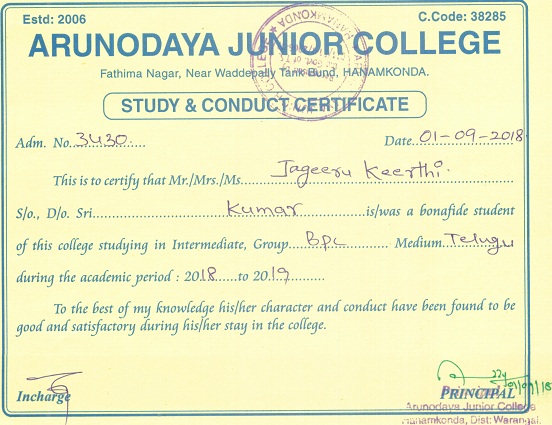 Estd: 2006 C.Code: 38285
ARUNODAYA JUNIOR COLLEGE
Fathima Nagar, Near Waddepally Tank Bund, HANAMKONDA.
STUDY & CONDUCT CERTIFICATE
Adm. No. 3430 Date 01-09-2018
This is to certify that Mr./Mrs./Ms. Jageeru Keerthi
S/o., D/o. Sri Kumar is/was a bonafide student
of this college studying in Intermediate, Group Bpc Medium Telugu
during the academic period : 2018 to 2019
To the best of my knowledge his/her character and conduct have been found to be
good and satisfactory during his/her stay in the college.
Incharge PRINCIPAL
Arunodaya Junior College
Hanamkonda, Dist: Warangal.